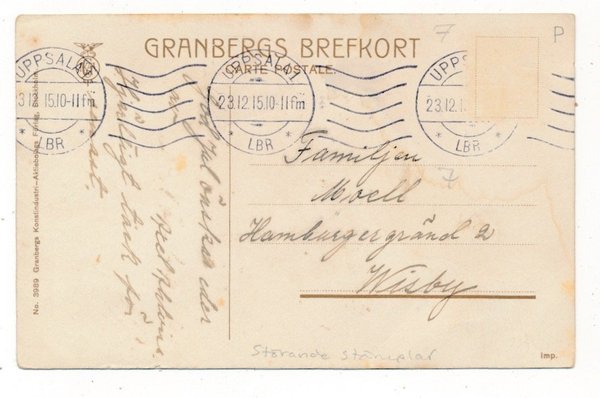 GRANBERGS BREFKORT
CARTE POSTALE.
UPPSALA
23.12.15.10-11 fm
LBR
UPPSALA
23.12.15.10-11 fm
LBR
UPPSALA
23.12.1
LBR
7
P
God jul önskas eder
Hjärtligt tack för
Familjen
Moell
7
Hamburgergränd 2
Wisby
No. 3989 Granbergs Konstindustri-Aktiebolags Förlag, Stockholm
Störande stämplar
Imp.